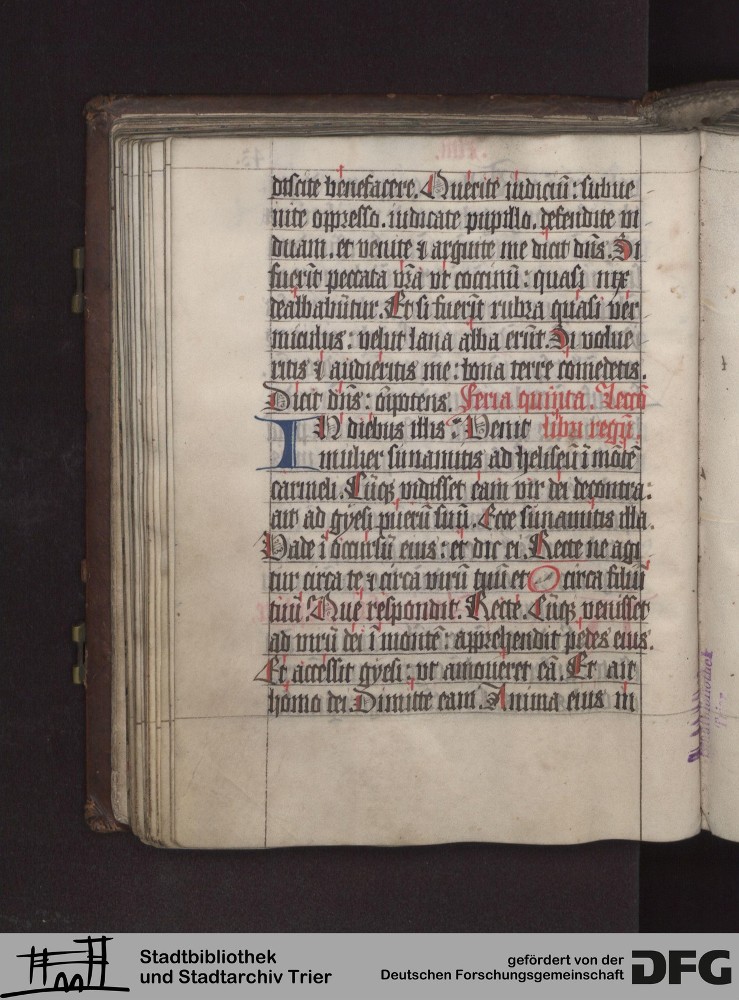 discite benefacere. Querite iudiciū: subue
nite oppresso. iudicate pupillo. defendite vi
duam. et venite ⁊ arguite me dicit dn̄s. Si
fuerīt peccata vr̄a vt coccinū: quasi nix
dealbabūtur. Et si fuerīt rubra quasi ver
miculus: velut lana alba erūt. Si volue
ritis ⁊ audieritis me: bona terre comedetis.
Dicit dn̄s: oīpotens. Feria quinta. Lectō
IN diebus illis: Venit libri regū.
mulier sunamitis ad heliseū ī mōtē
carmeli. Cūqꝫ vidisset eam vir dei decontra:
ait ad gyesi puerū suū. Ecce sunamitis illa.
Vade ī occursū eius: et dic ei. Recte ne agi
tur circa te ⁊ circa virū tuū et circa filiū
tuū? Que respondit. Recte. Cūqꝫ venisset
ad virū dei ī montē: apprehendit pedes eius.
Et accessit gyesi: vt amoueret eā. Et ait
homo dei. Dimitte eam. Anima eius in
Stadtbibliothek
Trier
Stadtbibliothek
und Stadtarchiv Trier
gefördert von der
Deutschen Forschungsgemeinschaft
DFG